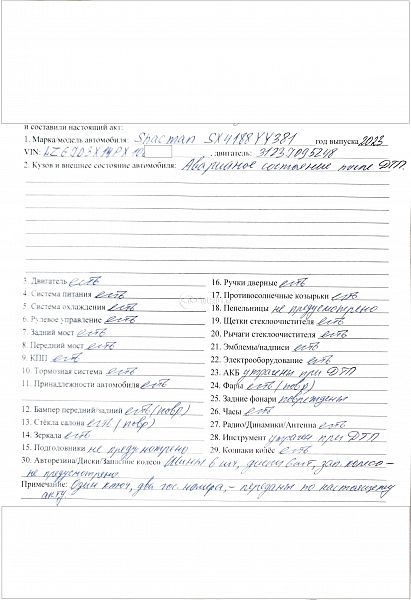 и составили настоящий акт:
1. Марка модель автомобиля: Shacman SX4188YY381 год выпуска 2023
VIN: двигатель: 3123J095248
2. Кузов и внешнее состояние автомобиля: Аварийное состояние после ДТП
3. Двигатель есть
4. Система питания есть
5. Система охлаждения есть
6. Рулевое управление есть
7. Задний мост есть
8. Передний мост есть
9. КПП есть
10. Тормозная система есть
11. Принадлежности автомобиля есть
12. Бампер передний/задний есть (повр)
13. Стёкла салона есть (повр)
14. Зеркала есть
15. Подголовники не предусмотрено
16. Ручки дверные есть
17. Противосолнечные козырьки есть
18. Пепельницы не предусмотрено
19. Щетки стеклоочистителя есть
20. Рычаги стеклоочистителя есть
21. Эмблемы/надписи есть
22. Электрооборудование есть
23. АКБ утрачены при ДТП
24. Фары есть (повр)
25. Задние фонари повреждены
26. Часы есть
27. Радио/Динамики/Антенна есть
28. Инструмент утрачен при ДТП
29. Колпаки колёс есть
30. Авторезина/Диски/Запасные колесо Шины 6 шт, диски 6 шт, зап. колесо -
не предусмотрено
Примечание: Один ключ, два гос. номера, - переданы по настоящему
акту